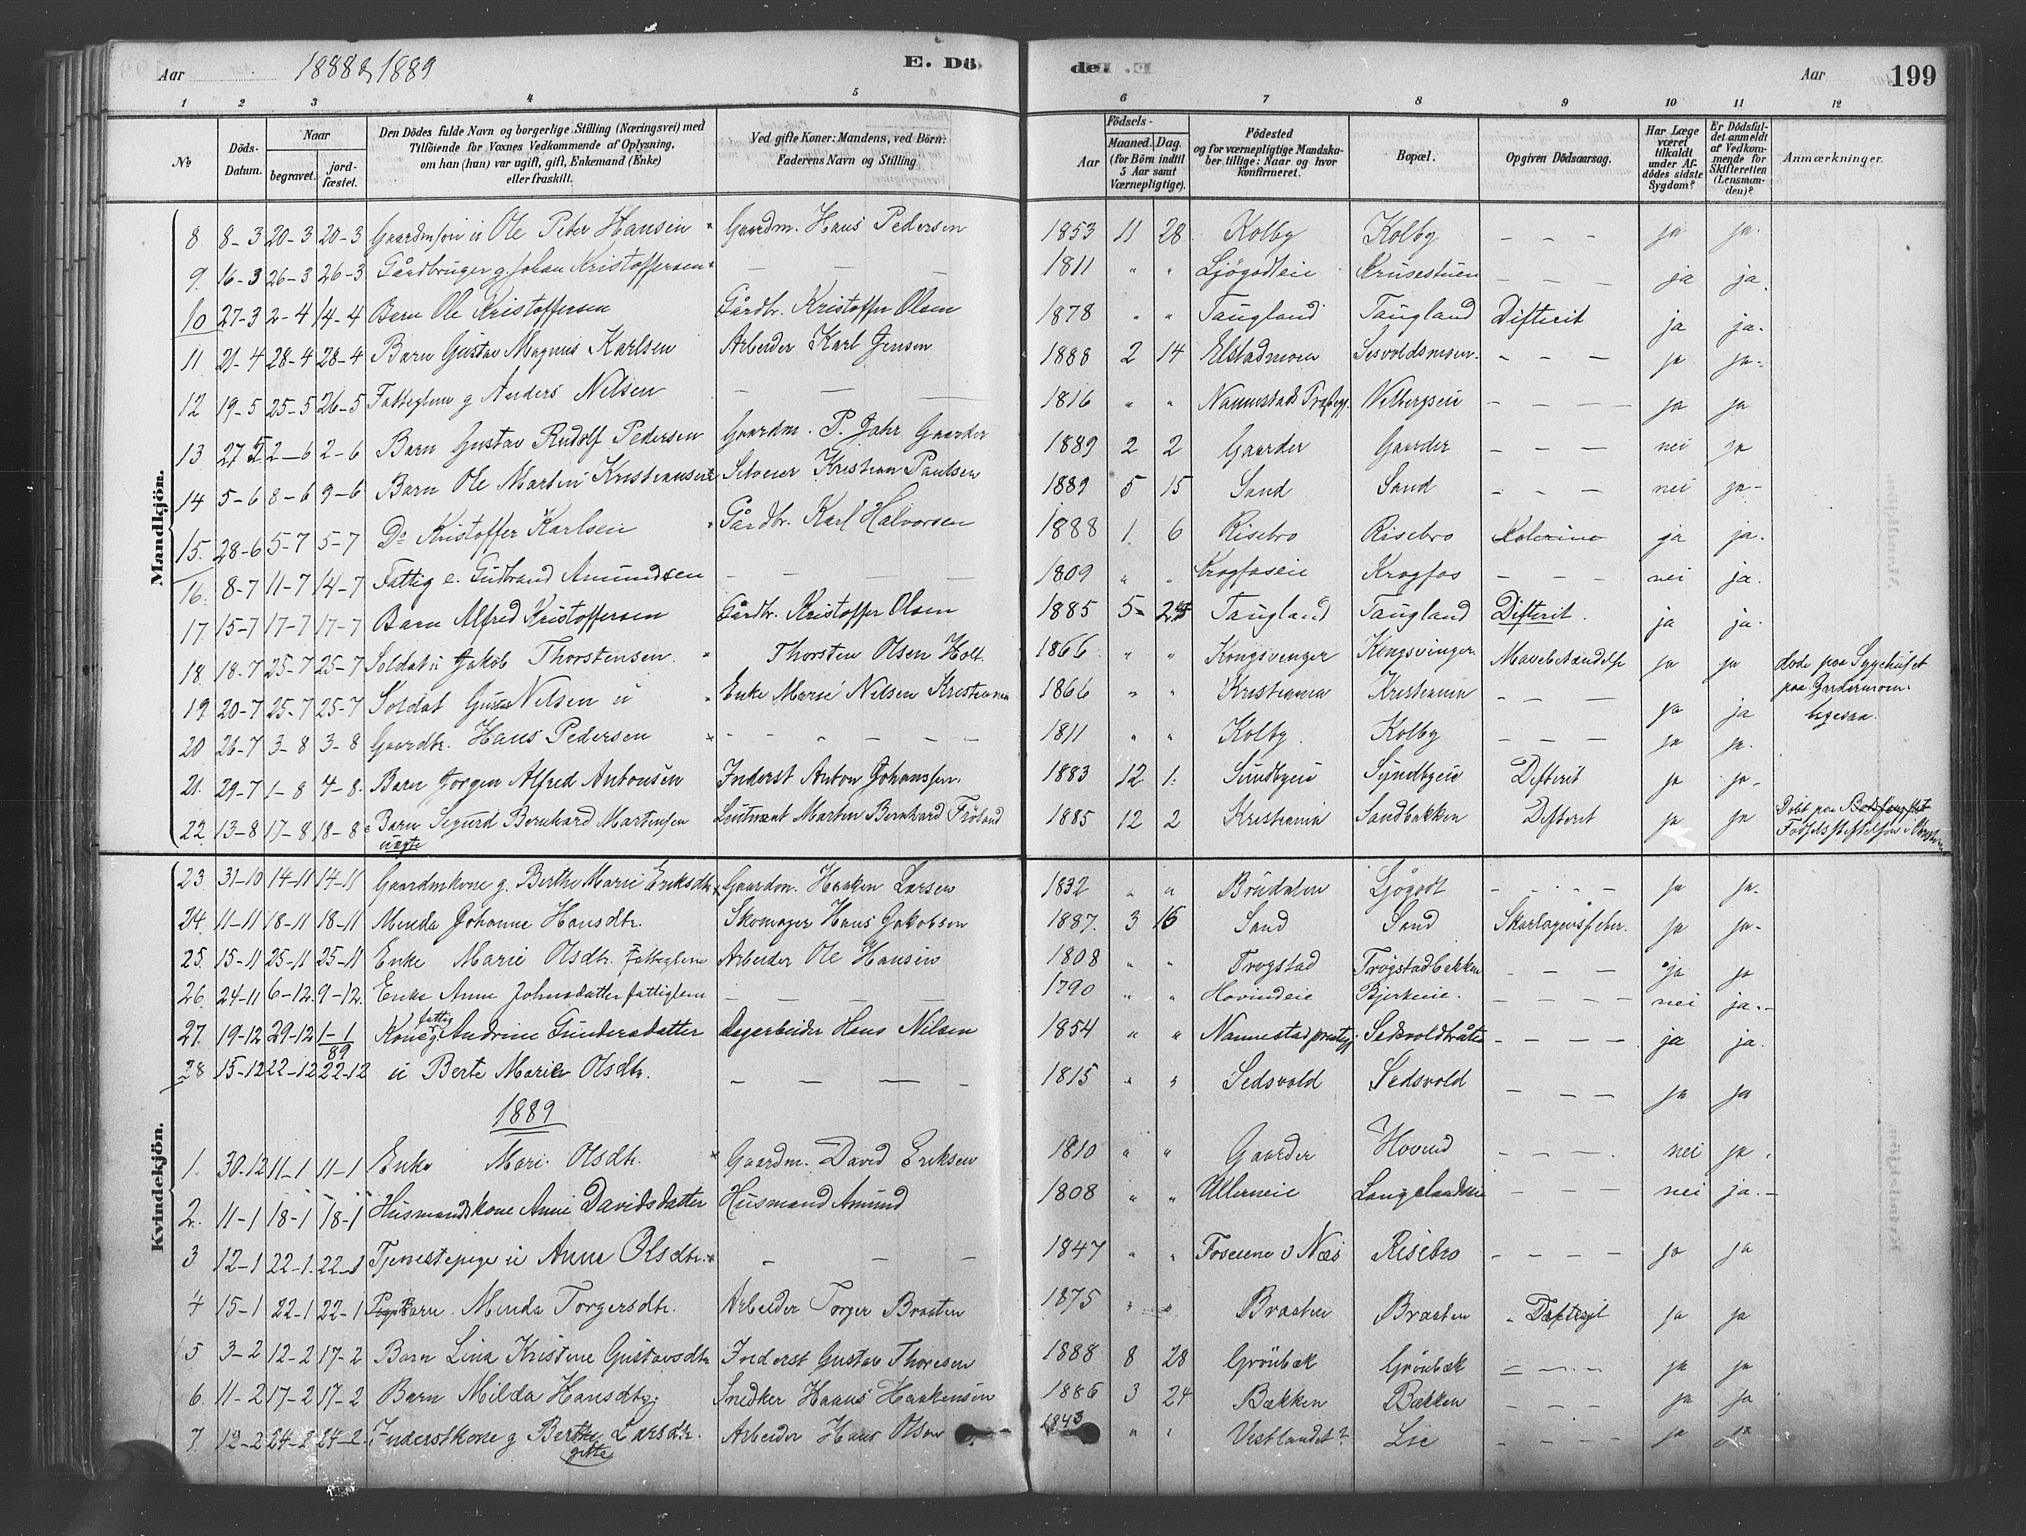 Aar 1888 & 1889 E. Dö de. Aar 199
1 2 3 4 5 6 7 8 9 10 11 12
No. Döds-Datum. Naar begravet. jord-fæstet. Den Dödes fulde Navn og borgerlige Stilling (Næringsvei) med Tilföiende for Voxnes Vedkommende af Oplysning, om han (hun) var ugift, gift, Enkemand (Enke) eller fraskilt. Ved gifte Koner: Mandens, ved Börn: Faderens Navn og Stilling Födsels- Aar Maaned. Dag. (for Börn indtil 5 Aar samt Værnepligtige). Födested og for værnepligtige Mandskaber tillige: Naar og hvor konfirmeret. Bopæl. Opgiven Dödsaarsag. Har Læge været tilkaldt under Afdödes sidste Sygdom? Er Dödsfaldet anmeldt af Vedkommende for Skifteretten (Lensmanden)? Anmærkninger.
Mandkjön.
8 8-3 20-3 20-3 Gaardmsön u Ole Peter Hansen Gaardm. Hans Pedersen 1853 11 28 Kolby Kolby - - - ja ja.
9. 16-3 26-3 26-3 Gårdbruger g. Johan Kristoffersen - - - 1811 " " Ljögodteie Krusestuen - - - ja ja.
10 27-3 2-4 14-4 Barn Ole Kristoffersen Gårdbr. Kristoffer Olsen 1878 " " Taugland Taugland Difterit ja ja.
11 21-4 28-4 28-4 Barn Gustav Magnus Karlsen Arbeider Karl Jensen 1888 2 14 Elstadmoen Sesvoldsmoen - - - ja ja.
12 19-5 25-5 26-5 Fattiglem g Anders Nilsen - - - 1816 " " Nannestads Præstgj. - - - ja ja
13 27 2-6 2-6 Barn Gustav Rudolf Pedersen Gaardm. P. Jahr Gaarder 1889 2 2 Gaarder Gaarder - - - nei ja
14 5-6 8-6 9-6 Barn Ole Martin Kristiansen Selveier Kristian Paulsen 1889 5 15 Sand Sand - - - nei ja-
15. 28-6 5-7 5-7 Do Kristoffer Karlsen Gårdbr. Karl Halvorsen 1888 1 6 Risebro Risebro Kolerine ja ja.
16. 8-7 11-7 14-7 Fattig e. Gudbrand Amundsen - - - 1809 " " Krogfoseie Krogfos - - - nei ja.
17 15-7 17-7 17-7 Barn Alfred Kristoffersen Gårdbr. Kristoffer Olsen 1885 5- Taugland Taugland Difterit. ja ja.
18. 18-7 25-7 25-7 Soldat u Jakob Thorstensen. Thorsten Olsen Holt. 1866 " " Kongsvinger Kongsvinger ja ja döde paa Sygehuset
19 20-7 25-7 25-7 Soldat Gust Nilsen u Enke Marie Nilsen Kristiania 1866 " " Kristiania Kristiania - - - ja ja paa Gardermoen.
20 26-7 3-8 3-8 Gaardbr. Hans Pedersen - - - 1811 " " Kolby. Kolby - - - ja ja.
21. 29-7 1-8 4-8. Barn Jörgen Alfred Antonsen Inderst Anton Johansen. 1883 12 1. Sundbyeie Sundbyeie Difterit ja ja-
22. 13-8 17-8 18-8 Barn Sigurd Bernhard Martinsen uægte Leutnant Martin Bernhard Fröland 1885 12 2 Kristiania Sandbakken Difterit ja ja Födt paa Födselsstiftelsen i
Kvindekjön.
23. 31-10 14-11 14-11 Gaardmkone g. Berthe Marie Eriksdtr Gaardm. Haaken Larsen 1832 " " Bröndalen Ljögodt - - - ja ja.
24. 11-11 18-11 18-11 Minda Johanne Hansdtr. Skomager Hans Jakobsen 1887. 3 15 Sand Sand Skarlagensfeber. ja ja-
25. 15-11 25-11 25-11 Enke Marie Olsdtr. Fattiglem Arbeider Ole Hansen 1808 " " Trogstad Trögstadbekken - - - ja ja
26. 24-11 6-12. 9-12. Enke Anne Johnsdatter fattiglem - - - 1790 " " Hovindeie Bjerkeeie. - - - nei ja.-
27. 19-12 29-12 1-1 89 Kone g. fattig Andrine Gundersdatter Dagarbeider Hans Nilsen 1854 " " Nannestad prestgj. Sedsvoldbråten - - - ja ja.
28 15-12 22-12 22-12 u Berte Marie Olsdtr. - - - 1815 " " Sedsvold Sedsvold - - - ja ja
1889
1. 30-12 11-1 11-1 Enke Mari Olsdtr. Gaardm. David Eriksen 1810 " " Gaarder Hovind - - - nei ja.
2. 11-1 18-1 18-1 Husmandskone Anne Davidsdatter Husmand Amund 1808 " " Ullerneie Langelandseie - - - nei ja.-
3 12-1 22-1. 22-1 Tjenestepige u Anne Olsdtr. - - - 1847 " " Foseiene v Næs Risebro - - - ja ja
4 15-1 22-1 22-1 Barn. Minda Torgersdtr. Arbeider Torger Braaten 1875 " " Braaten Braaten ja ja
5 3-2 12-2 17-2 Barn Lina Kristine Gustavsdtr Inderst Gustav Thoresen 1888 8 28 Grönbæk Grönbæk - - - ja ja
6. 11-2 17-2 17-2 Barn Milda Hansdtr. Snedker Haans Haakensen 1886 3 24 Bækken Bækken ja ja
7. 12-2 24-2 24-2. Inderstkone g Berthe gitte Larsdtr. Arbeider Hans Olsen 1843 " " Vestlandet? Lie - - - ja ja